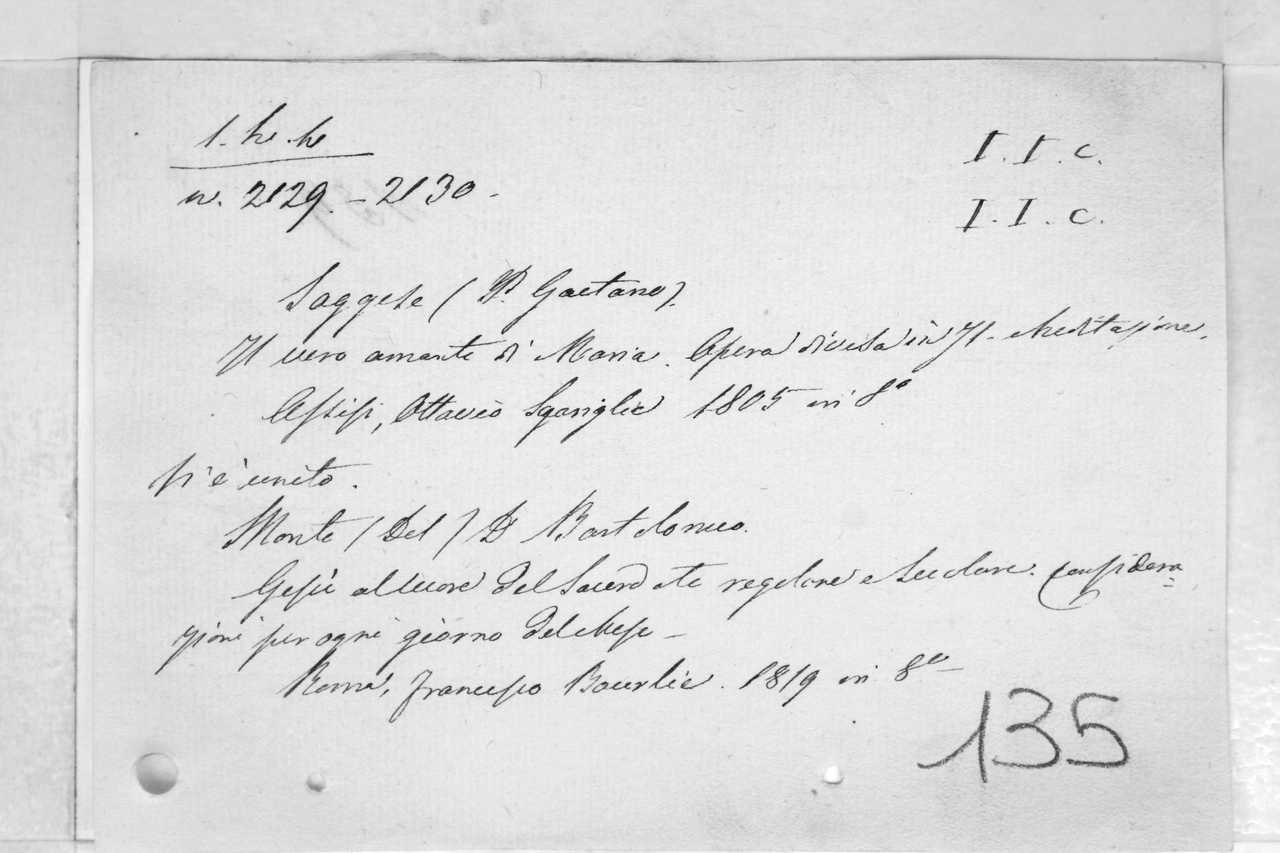 1. h. h
n. 2129. - 2130 -
I. I. c.
I. I. c.
Saggese (D. Gaetano).
Il vero amante di Maria. Opera divisa in Meditazione.
Assisi, Ottavio Sgariglia 1805 in 8°
Si è unito.
Monte (Del) D. Bartolomeo.
Gesù al cuore del Sacerdote regolare e Secolare. Considera=
zioni per ogni giorno del Mese -
Roma, Francesco Bourlie. 1819 in 8°
135